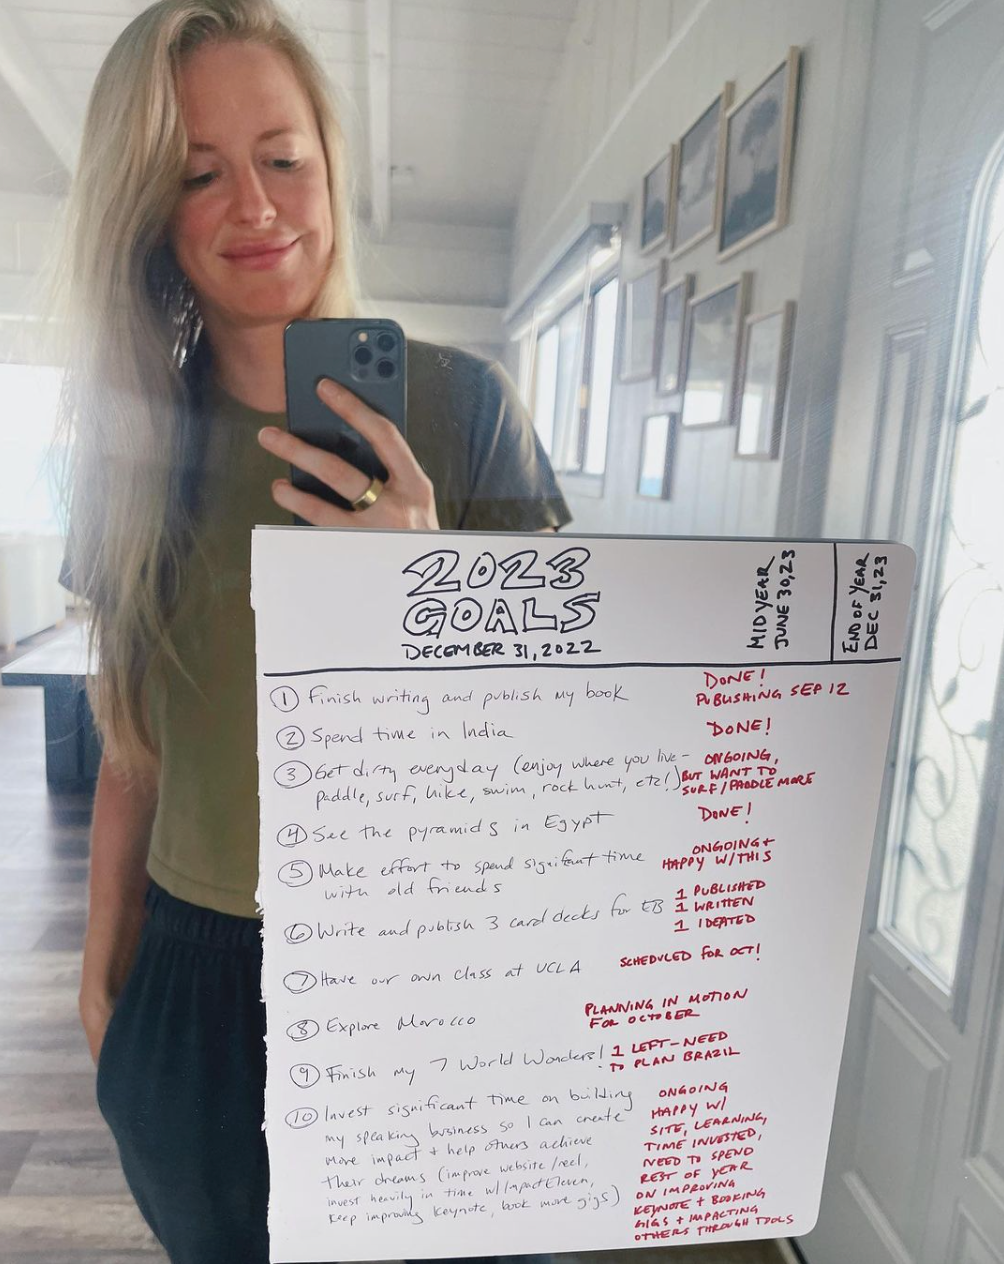 2023
GOALS
DECEMBER 31, 2022
MID YEAR
JUNE 30, 23
END OF YEAR
DEC 31, 23
① Finish writing and publish my book
DONE!
PUBLISHING SEP 12
② Spend time in India
DONE!
③ Get dirty everyday (enjoy where you live -
paddle, surf, hike, swim, rock hunt, etc!)
ONGOING,
BUT WANT TO
SURF / PADDLE MORE
④ See the pyramids in Egypt
DONE!
⑤ Make effort to spend signifant time
with old friends
ONGOING +
HAPPY W/ THIS
⑥ Write and publish 3 card decks for EB
1 PUBLISHED
1 WRITTEN
1 IDEATED
⑦ Have our own class at UCLA
SCHEDULED FOR OCT!
⑧ Explore Morocco
PLANNING IN MOTION
FOR OCTOBER
⑨ Finish my 7 World Wonders!
1 LEFT - NEED
TO PLAN BRAZIL
⑩ Invest significant time on building
my speaking business so I can create
more impact + help others achieve
their dreams (improve website/reel,
invest heavily in time w/ ImpactEleven,
keep improving keynote, book more gigs)
ONGOING
HAPPY W/
SITE, LEARNING,
TIME INVESTED,
NEED TO SPEND
REST OF YEAR
ON IMPROVING
KEYNOTE + BOOKING
GIGS + IMPACTING
OTHERS THROUGH TOOLS